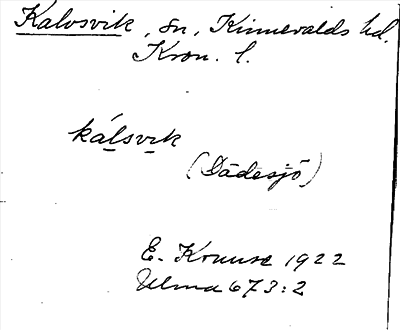 Kalvsvik, sn, Kinnevalds hd.
Kron. l.
kálsvik
(Dädesjö)
E. Kruuse 1922
Ulma 673:2